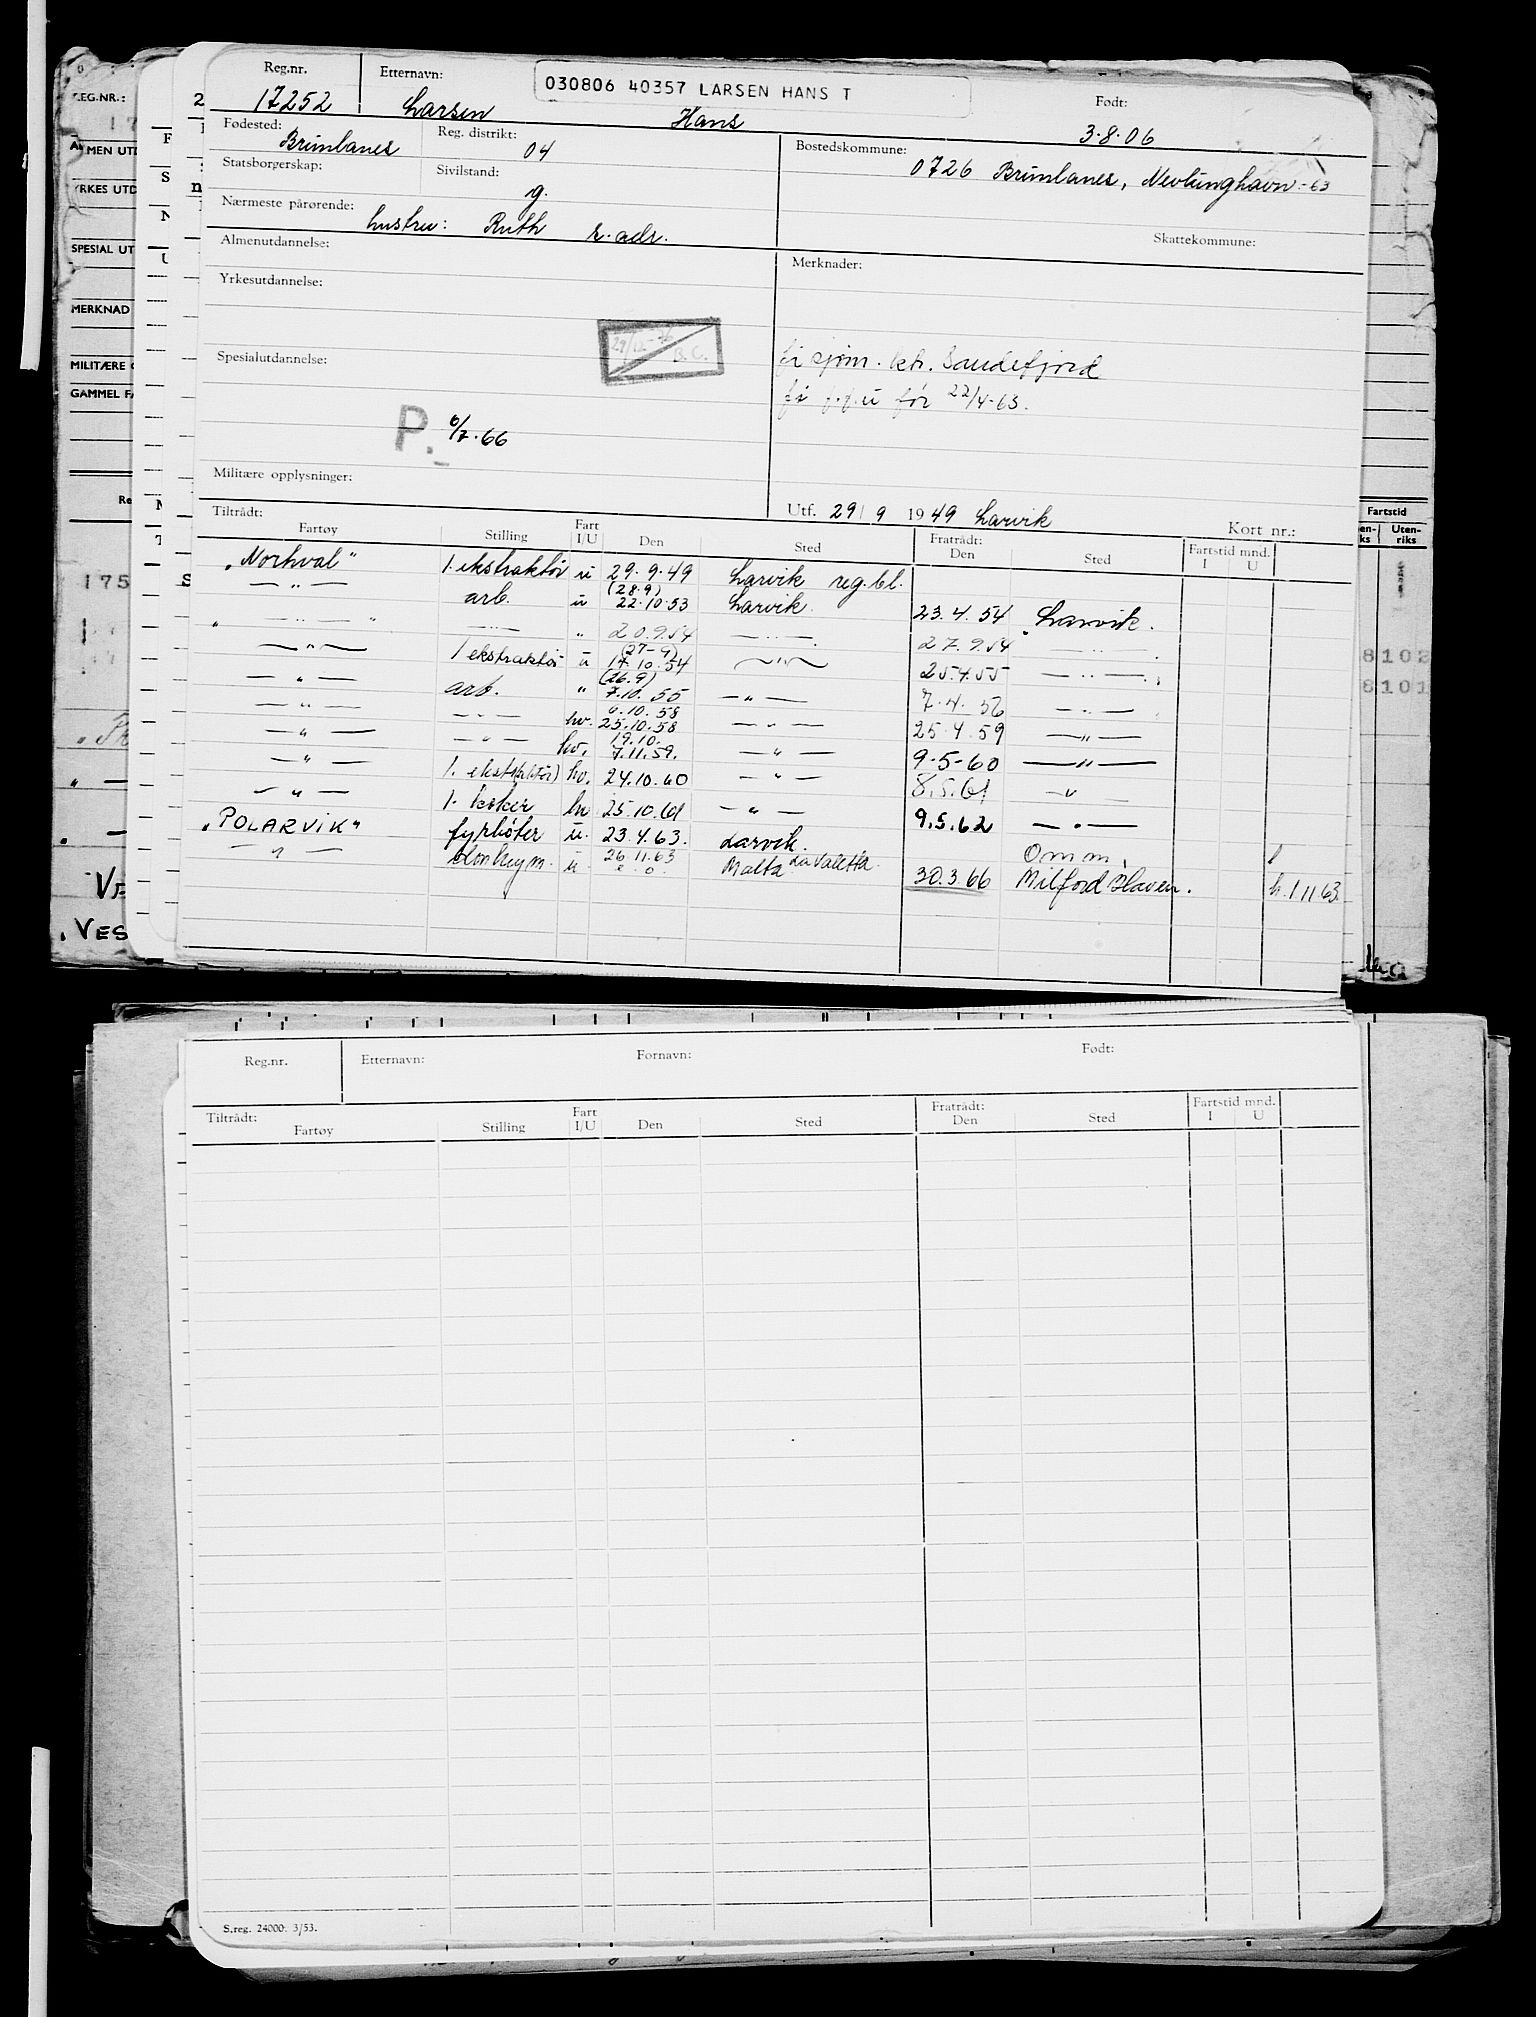 Reg.nr. Etternavn: 030806 40357 LARSEN HANS T Født:
17252 Larsen Hans 3.8.06
Fødested: Brunlanes Reg. distrikt: 04 Bostedskommune: 0726 Brunlanes, Nevlunghavn -63
Statsborgerskap: Sivilstand: g.
Nærmeste pårørende: hustru: Ruth s. adr. Skattekommune:
Almenutdannelse: Merknader:
Yrkesutdannelse:
29/12-76 B.C.
Spesialutdannelse: fi sjøm. ktr. Sandefjord
fi p.p.u før 22/4-63.
P. 6/7.66
Militære opplysninger:
Utf. 29/9 1949 Larvik Kort nr.:
Tiltrådt: Fratrådt: Fartstid mnd.
Fartøy Stilling Fart I/U Den Sted Den Sted I U
"Norhval" 1. ekstraktør u 29.9.49 Larvik reg.bl.
— " — arb. u (28.9) 22.10.53 Larvik 23.4.54 Larvik.
" — " — " — " — " 20.9.54 — " — 27.9.54 — " —
— " — 1 ekstraktør u (27-9) 17.10.54 — " — 25.4.55 — " —
— " — arb. " (26.9) 7.10.55 — " — 7.4.56 — " —
— " — — " — hv. 6.10.58 25.10.58 — " — 25.4.59 — " —
— " — — " — hv. 19.10. 7.11.59. — " — 9-5-60 — " —
— " — 1. ekstr(aktør) hv. 24.10.60 — " — 8.5.61 — " —
— " — 1. koker hv 25.10.61 — " — 9.5.62 — " —
"POLARVIK" fyrbøter u. 23.4.63. Larvik. Omm.
— " — u 26.11.63 Malta La Valetta 30.3.66 Milford Haven. h. 1 11 63.
EG.NR.:
MERKNAD
SPESIAL UT
MILITÆRE
GAMMEL
175
Fartstid
Uten-riks
8102
8101
VES
Reg.nr. Etternavn: Fornavn: Født:
Tiltrådt: Fratrådt: Fartstid mnd.
Fartøy Stilling Fart I/U Den Sted Den Sted I U
S.reg. 24000. 3/53.